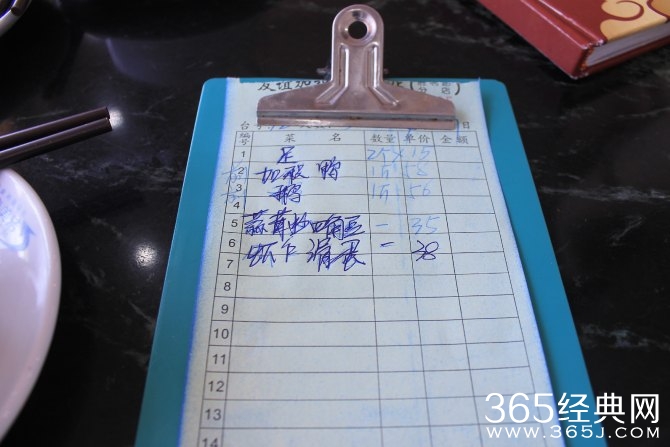 友谊加
店
日
编号 菜 名 数量 单价 金额
1 足 2份 × 15
2 加积鸭 1份 56
3 鹅 1份 56
4
5 蒜茸炒四角豆 - 35
6 虾仁滑蛋 - 38
7
8
9
10
11
12
13
14
365经典网
www.365J.com